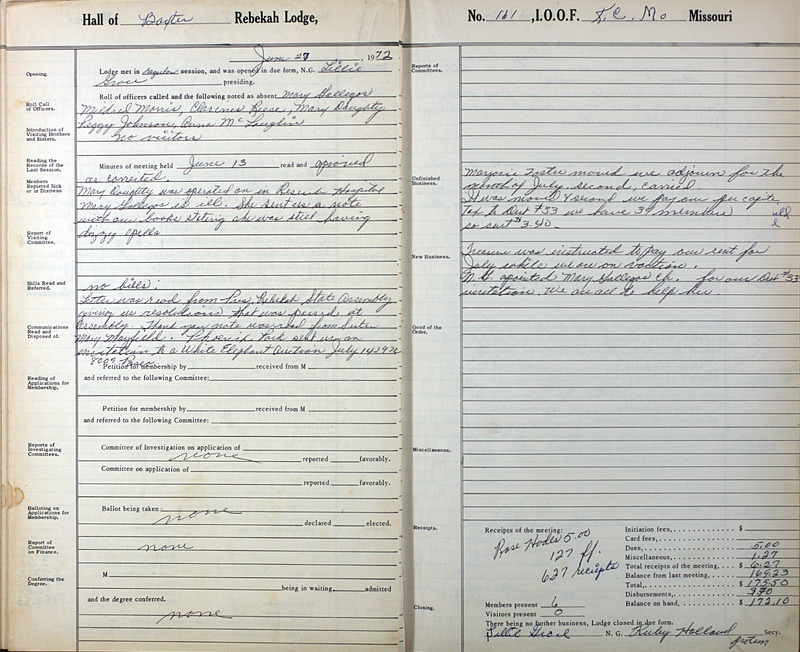 Hall of Baxter Rebekah Lodge,
June 27, 1972
Opening.
Lodge met in regular session, and was opened in due form, N.G. Lillie
Grace presiding.
Roll Call of Officers.
Roll of officers called and the following noted as absent Mary Gallegos
Mildred Morris, Clarence Reese, Mary Doughty
Peggy Johnson, Anna McLauglin
Introduction of Visiting Brothers and Sisters.
no visitors
Reading the Records of the Last Session.
Minutes of meeting held June 13 read and aproved
as corrected.
Members Reported Sick or in Distress
Mary Doughty was operated on in Research Hospital
Mary Gallegos is ill. She sent us a note
with our books stating she was still having
Report of Visiting Committee.
dizzy spells
Bills Read and Referred.
no bills.
Letter was read from Pres, Rebekah State Assembly
giving us resolutions that was passed at
Communications Read and Disposed of.
Assembly. Thank you note was read from Sister
Mary Mayfield. Phoenix Park sent us an
invitation to a White Elephant Auction July 14 1972
8009
Petition for membership by received from M
Reading of Applications for Membership.
and referred to the following Committee:
Petition for membership by received from M
and referred to the following Committee:
Reports of Investigating Committees.
Committee of Investigation on application of
none reported favorably.
Committee on application of
reported favorably.
Balloting on Applications for Membership.
Ballot being taken
none declared elected.
Report of Committee on Finance.
none
Conferring the Degree.
M
being in waiting, admitted
and the degree conferred.
none
No. 161, I.O.O.F. K.C. Mo Missouri
Reports of Committees.
Unfinished Business.
Marjorie Foster moved we adjourn for the
month of July. second, carried.
It was moved & second we pay our per capita
tax to Dist #33 we have 34 members
so sent $3.40.
New Business.
Treasure was instructed to pay our rent for
July while we are on vacation.
N.G. apointed Mary Gallegos Ch. for our Dist #33
visitation. We are all to help her
Good of the Order.
Miscellaneous.
Receipts.
Receipts of the meeting:
Rose Hodes 5.00
127 ff.
627 receipts
Initiation fees, $
Card fees,
Dues, 5.00
Miscellaneous, 1.27
Total receipts of the meeting, $ 6.27
Balance from last meeting, 169.23
Total, $ 175.50
Disbursements, 3.40
Balance on hand, $ 172.10
Members present 6
Visitors present 0
Closing.
There being no further business, Lodge closed in due form.
Lillie Grace N.G. Ruby Holland Secy.
protem